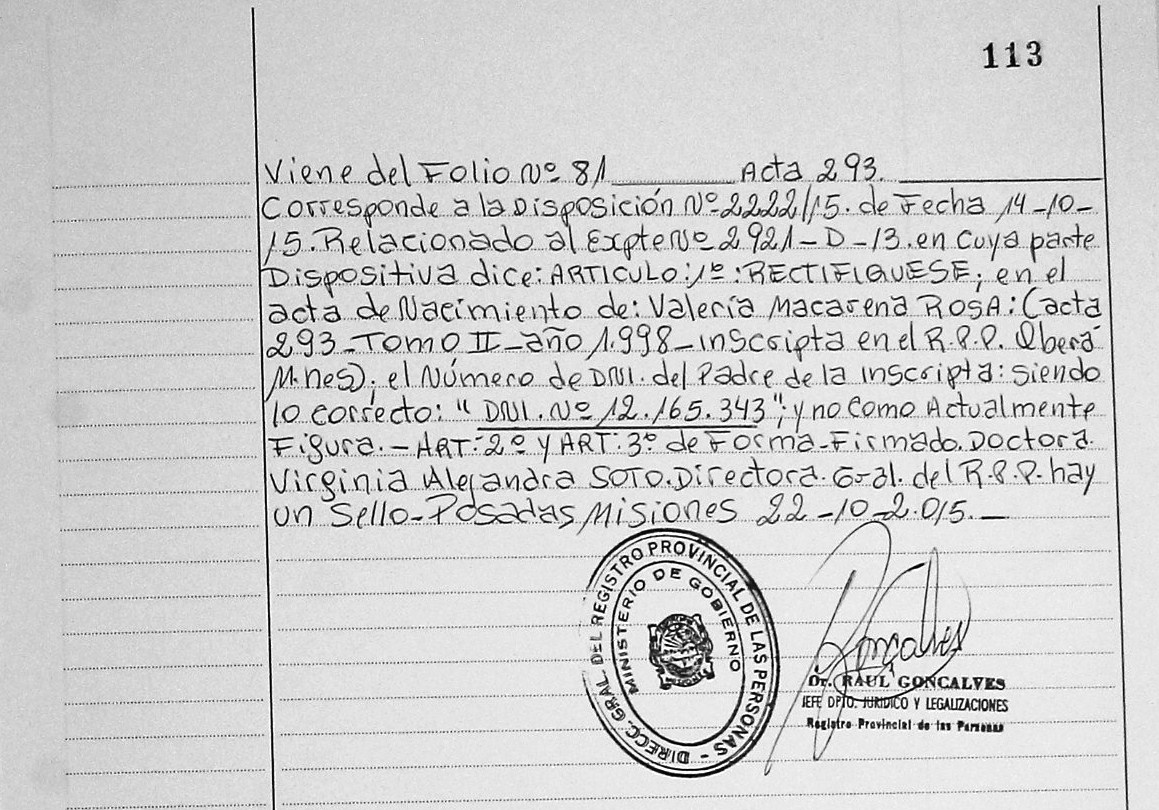 113
Viene del Folio Nº 81________ Acta 293.________
Corresponde a la Disposición Nº 2222/15. de Fecha 14-10-
15. Relacionado al Expte Nº 2921-D-13. en cuya parte
Dispositiva dice: ARTICULO: 1º: RECTIFIQUESE; en el
acta de Nacimiento de: Valeria Macarena ROSA: (acta
293-TOMO II-año 1.998-inscripta en el R.P.P. Oberá-
M.nes); el Número de DNI. del Padre de la inscripta: siendo
lo correcto: "DNI. Nº 12.165.343"; y no como Actualmente
Figura.- ART: 2º y ART: 3º de Forma-Firmado. Doctora.
Virginia Alejandra SOTO. Directora. Gral. del R.P.P. hay
un Sello-Posadas Misiones 22-10-2.015.—
DIRECC. GRAL. DEL REGISTRO PROVINCIAL DE LAS PERSONAS -
MINISTERIO DE GOBIERNO
Gonçalves
Dr. RAUL GONCALVES
JEFE DPTO. JURIDICO Y LEGALIZACIONES
Registro Provincial de las Personas